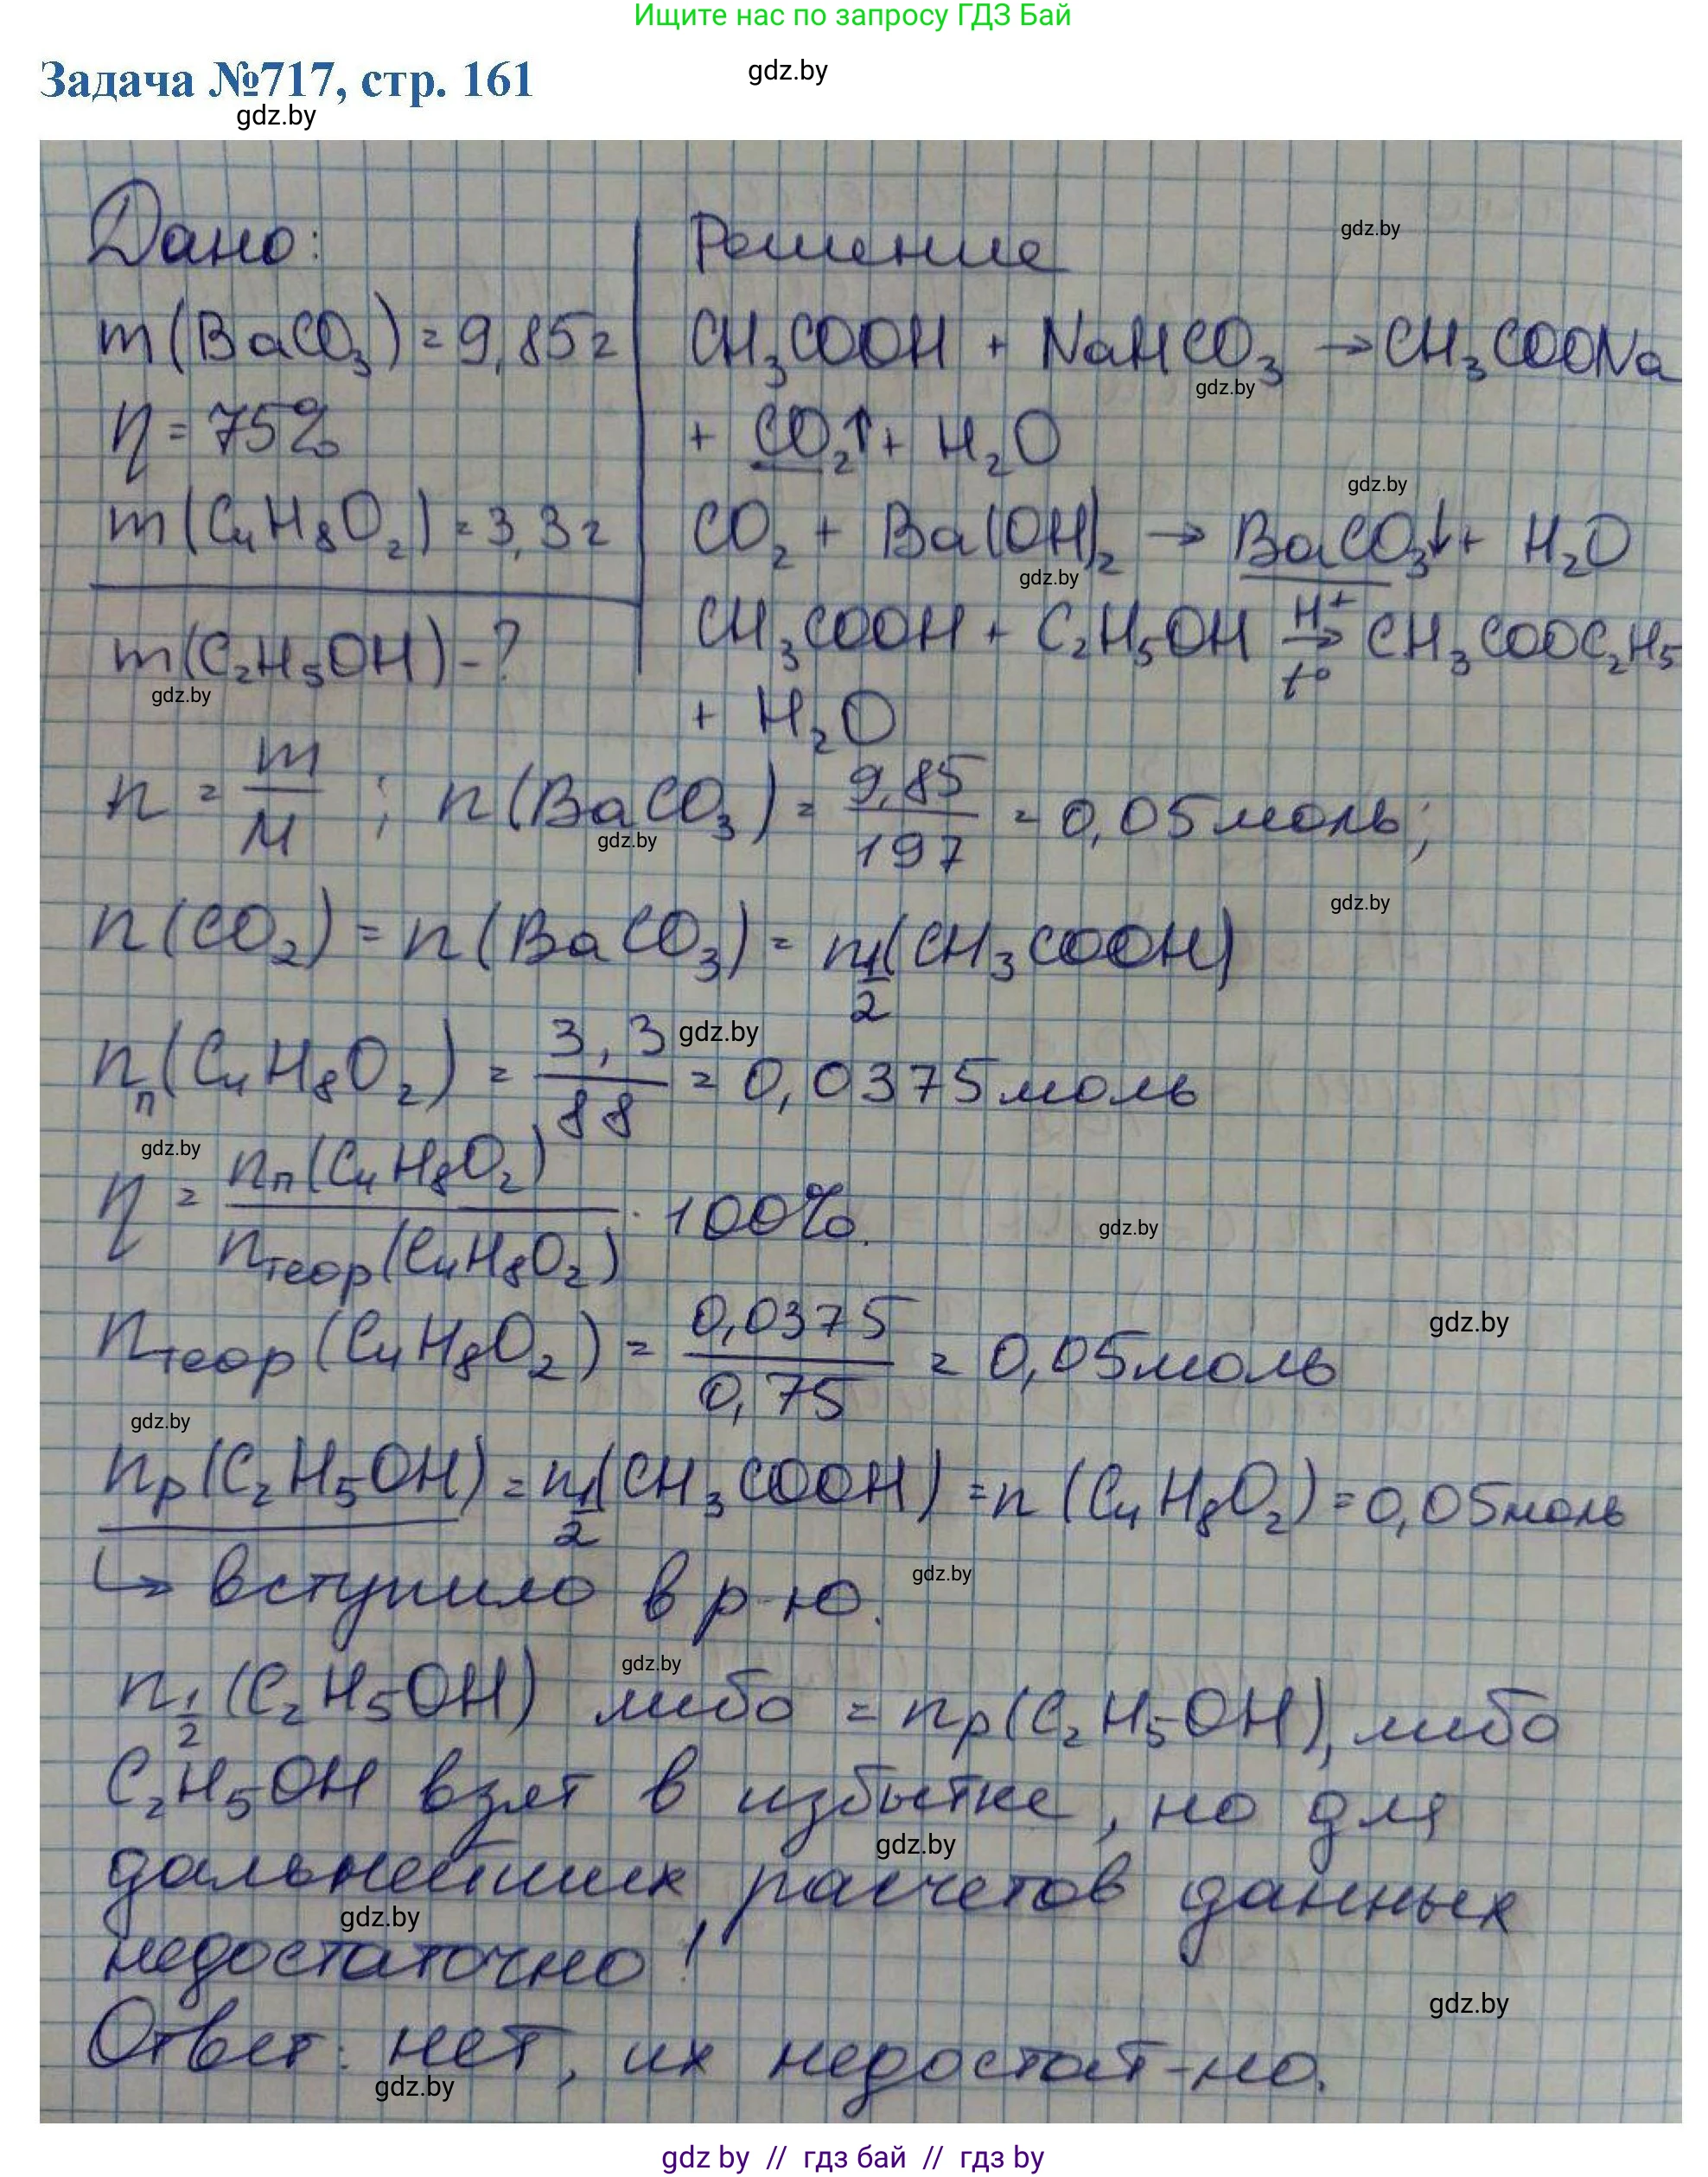 Ищите нас по запросу ГДЗ Бай
Задача №717, стр. 161
gdz.by
gdz.by
Дано:
m(BaCO₃) = 9,85г
η = 75%
m(C₄H₈O₂) = 3,3г
m(C₂H₅OH) - ?
gdz.by
Решение
gdz.by
CH₃COOH + NaHCO₃ → CH₃COONa
gdz.by
+ CO₂↑ + H₂O
gdz.by
CO₂ + Ba(OH)₂ → BaCO₃↓ + H₂O
gdz.by
CH₃COOH + C₂H₅OH H⁺ → t° CH₃COOC₂H₅
+ H₂O
n = m/M ; n(BaCO₃) = 9,85/197 = 0,05 моль;
gdz.by
gdz.by
n(CO₂) = n(BaCO₃) = n½(CH₃COOH)
nп(C₄H₈O₂) = 3,3/88 = 0,0375 моль
gdz.by
gdz.by
η = nп(C₄H₈O₂)/nтеор(C₄H₈O₂) · 100%.
gdz.by
nтеор(C₄H₈O₂) = 0,0375/0,75 = 0,05 моль
gdz.by
gdz.by
nр(C₂H₅OH) = n½(CH₃COOH) = n(C₄H₈O₂) = 0,05 моль
↳ вступило в р-ю.
gdz.by
gdz.by
n½(C₂H₅OH) либо = nр(C₂H₅OH), либо
C₂H₅OH взят в избытке, но для
gdz.by
дальнейших расчетов данных
gdz.by
недостаточно!
gdz.by
Ответ: нет, их недостат-но.
gdz.by
gdz by // гдз бай // гдз by